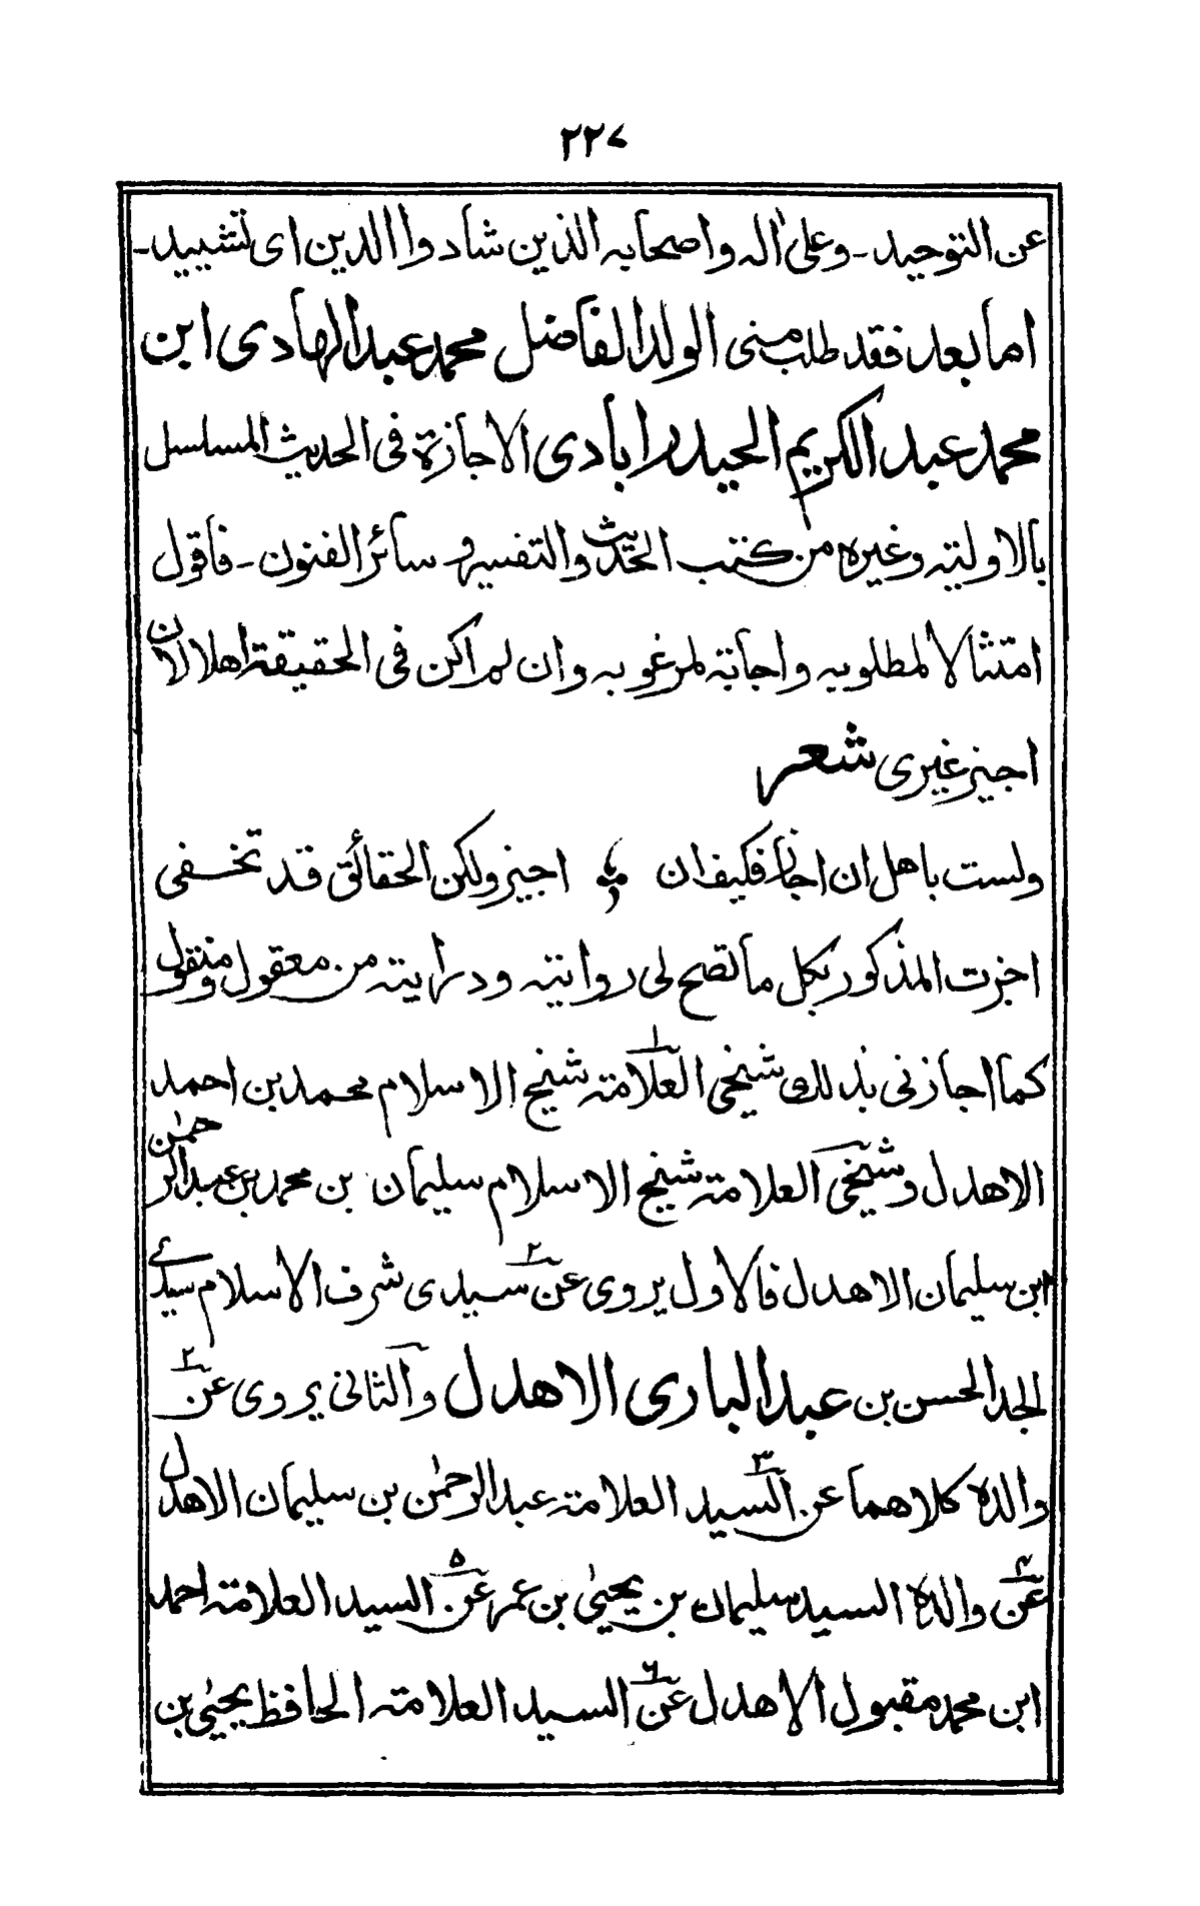 ٢٢٧
عن التوحيد ـ وعلى اله واصحابه الذين شادوا الدين اى تشييد ـ
اما بعد فقد طلب منى الولد الفاضل محمد عبد الهادى ابن
محمد عبد الكريم الحيدرابادى الاجازة فى الحديث المسلسل
بالاولية وغيره من كتب الحديث والتفسير وسائر الفنون ـ فاقول
امتثالا لمطلوبه واجابة لمرغوبه وان لم اكن فى الحقيقة اهلا لان
اجيز غيرى شعر
ولست باهل ان اجاز فكيف ان اجيز ولكن الحقائق قد تخفى
اجزت المذكور بكل ما تصح لى روايته ودرايته من معقول ومنقول
كما اجازنى بذلك شيخى العلامة ١ شيخ الاسلام محمد بن احمد
الاهدل وشيخى العلامة شيخ الاسلام سليمان بن محمد بن عبد الرحمٰن
ابن سليمان الاهدل فالاول يروى عن ٢ سيدى شرف الاسلام سيدے
الجد الحسن بن عبد البارى الاهدل والثانى يروى عن ٢
والده كلاهما عن ٣ السيد العلامة عبد الرحمٰن بن سليمان الاهدل
عن ٤ والده السيد سليمان بن يحيىٰ بن عمر عن ٥ السيد العلامة احمد
ابن محمد مقبول الاهدل عن ٦ السيد العلامة الحافظ يحيىٰ بن